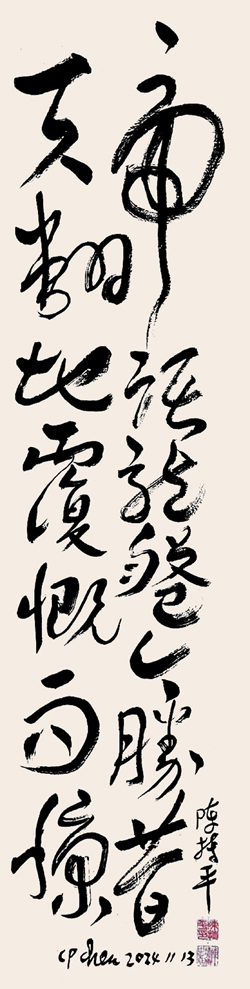 虎踞龍盤今勝昔
天翻地覆慨而慷
陳持平
CP Chen 2024 11 13